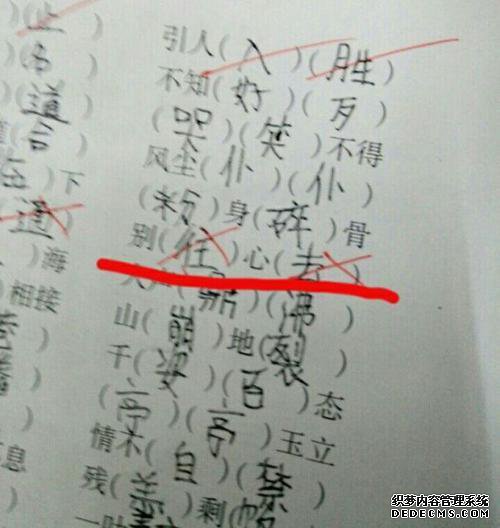 )(止)
)(名)
)(道)
(合)
)下
(道)
)海
)相接
息
引人(入)(胜)
不知(好)(歹)
(哭)(笑)不得
风尘(仆)(仆)
(粉)身(碎)骨
别( )心(去)
人声( )(沸)
山(崩)地(裂)
千(姿)(百)态
(亭)(亭)玉立
情不(自)(禁)
残(羹)剩(
织梦内容管理系统
DEDECMS.COM